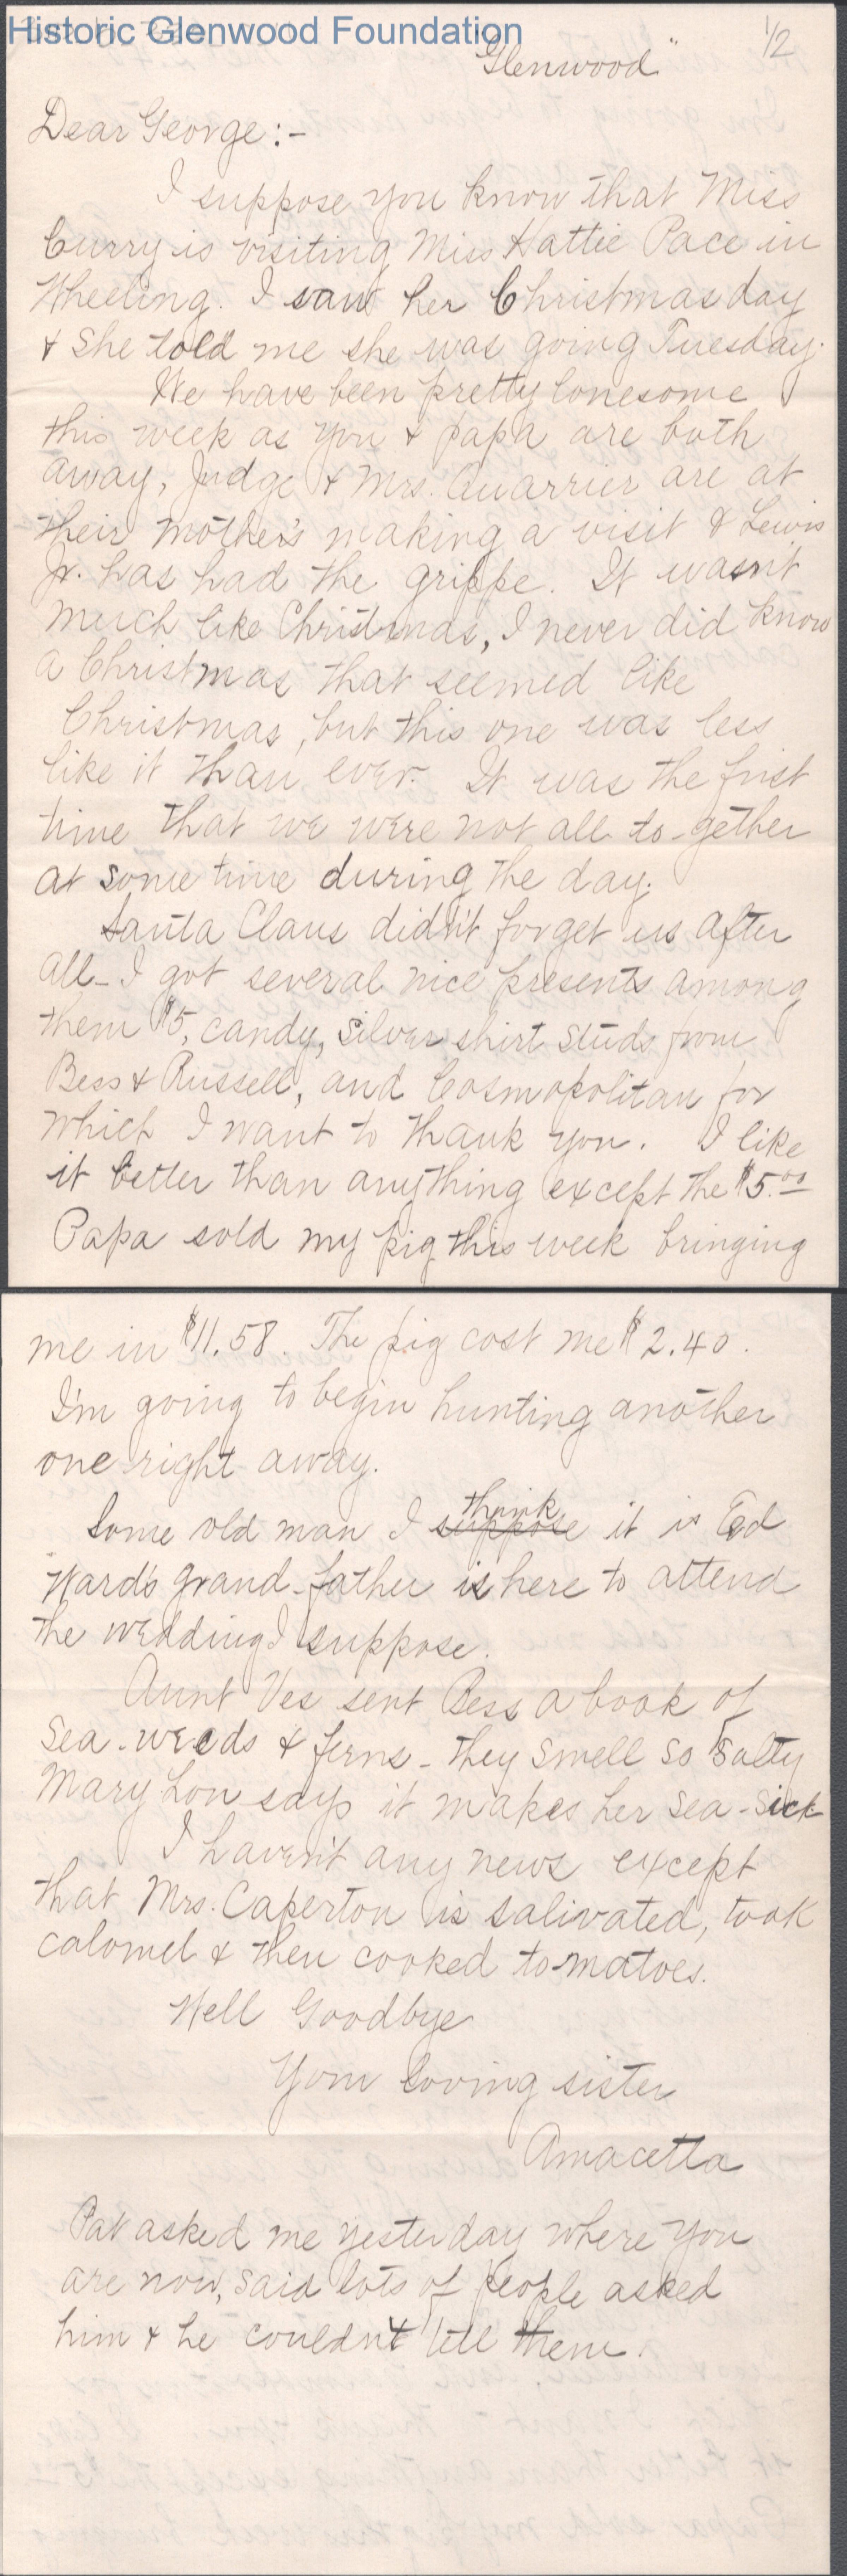 Historic Glenwood Foundation
1/2
"Glenwood"
Dear George:-
I suppose you know that Miss
Curry is visiting Miss Hattie Pace in
Wheeling. I saw her Christmas day
& she told me she was going Tuesday.
We have been pretty lonesome
this week as you & papa are both
away, Judge & Mrs. Quarrier are at
their mother's making a visit & Lewis
Jr. has had the grippe. It wasn't
much like Christmas, I never did know
a Christmas that seemed like
Christmas, but this one was less
like it than ever. It was the first
time that we were not all to-gether
at some time during the day.
Santa Claus didn't forget us after
all - I got several nice presents among
them $5, candy, silver shirt studs from
Bess & Russell, and Cosmopolitan for
which I want to thank you. I like
it better than anything except the $5.00
Papa sold my pig this week bringing
me in $11.58. The pig cost me $2.40.
I'm going to begin hunting another
one right away.
Some old man I suppose think it is Ed
Ward's grand-father is here to attend
the wedding I suppose.
Aunt Ves sent Bess a book of
sea-weeds & ferns - they smell so salty
Mary Lou says it makes her sea-sick
I haven't any news except
that Mrs. Caperton is salivated, took
calomel & then cooked to-matoes.
Well Goodbye
Your loving sister
Amacetta
Pat asked me yesterday where you
are now, said lots of people asked
him & he couldn't tell them.